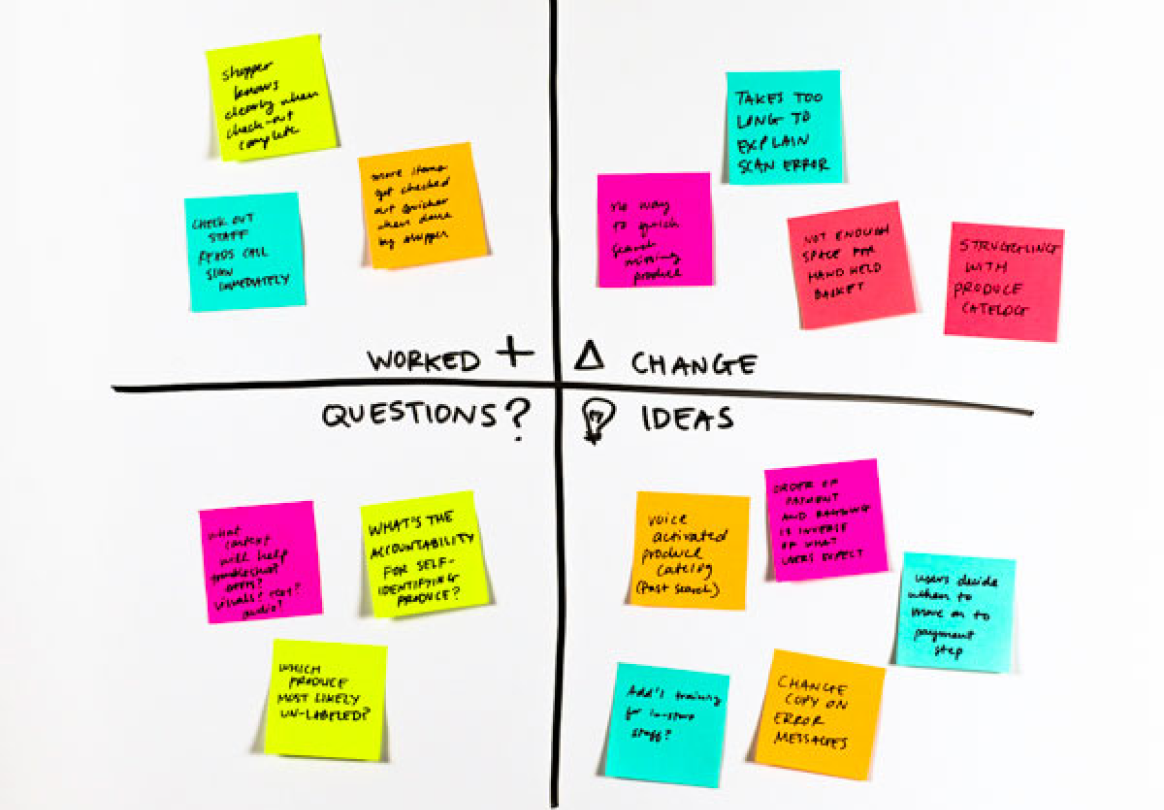 shopper
knows
clearly when
check-out
complete
more items
get checked
out quicker
when done
by shopper
CHECK OUT
STAFF
READS CALL
SIGN
IMMEDIATELY
WORKED +
TAKES TOO
LONG TO
EXPLAIN
SCAN ERROR
no way
to quick
search
missing
produce
NOT ENOUGH
SPACE FOR
HAND HELD
BASKET
STRUGGLING
WITH
PRODUCE
CATELOG
Δ CHANGE
QUESTIONS?
what
context
will help
troubleshoot
errors?
visuals? text?
audio?
WHAT'S THE
ACCOUNTABILITY
FOR SELF-
IDENTIFYING
PRODUCE?
WHICH
PRODUCE
MOST LIKELY
UN-LABELED?
IDEAS
voice
activated
produce
catelog
(Past search)
ORDER OF
PAYMENT
AND BAGGING
IS INVERSE
OF WHAT
USERS EXPECT
users decide
when to
move on to
payment
step
Add'l training
for in-store
staff?
CHANGE
COPY ON
ERROR
MESSAGES